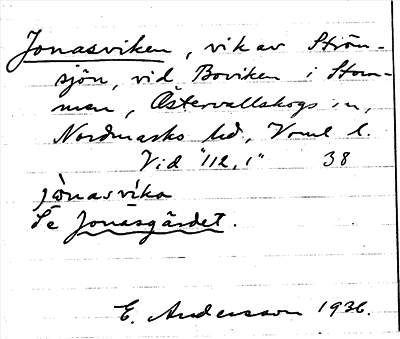 Jonasviken, vik av Ström-
sjön, vid Boviken i Stom-
men, Östervallskogs sn,
Nordmarks hd, Vrml l.
Vid "112,1" 38
jònasvika
Se Jonasgärdet.
E. Andersson 1936.